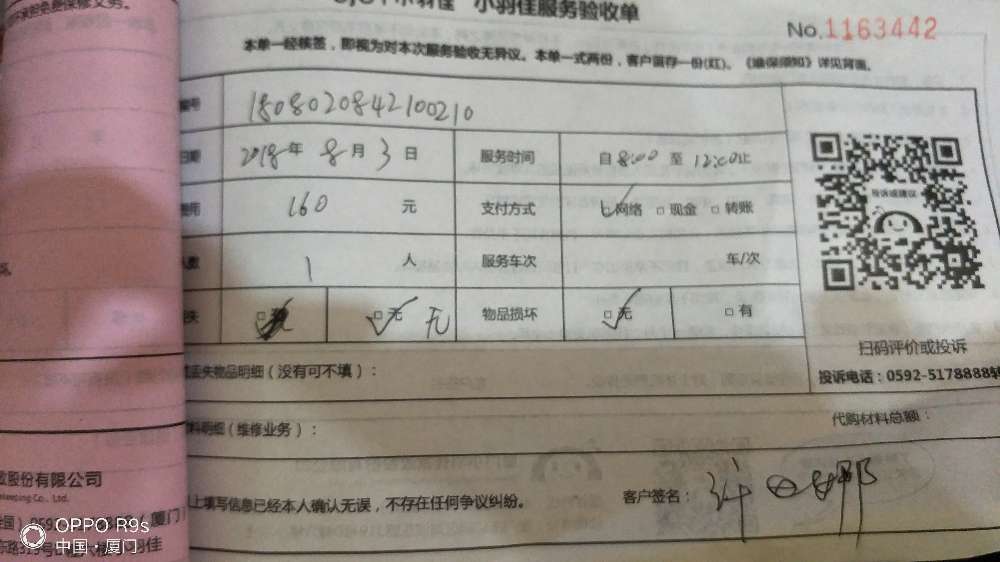 不羽佳 小羽佳服务验收单
No.1163442
本单一经核签，即视为对本次服务验收无异议。本单一式两份，客户留存一份(红)。《维保须知》详见背面。
编号 1808020842100210
日期 2018年 8月 3日 服务时间 自8:00 至 12:00止
费用 160 元 支付方式 网络 □现金 □转账
人数 1 人 服务车次 车/次
失 □ □无 无 物品损坏 □无 □有
投诉或建议
扫码评价或投诉
投诉电话：0592-5178888转
丢失物品明细（没有可不填）：
代购材料总额：
料明细（维修业务）：
以上填写信息已经本人确认无误，不存在任何争议纠纷。
客户签名：许
免费保修义务。
政股份有限公司
keeping Co., Ltd.
（厦门）
羽佳
OPPO R9s
中国·厦门